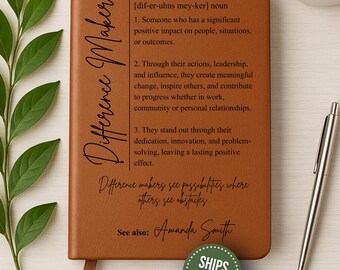 Difference Maker
[dif-er-uhns mey-ker] noun
1. Someone who has a significant
positive impact on people, situations,
or outcomes.
2. Through their actions, leadership,
and influence, they create meaningful
change, inspire others, and contribute
to progress whether in work,
community or personal relationships.
3. They stand out through their
dedication, innovation, and problem-
solving, leaving a lasting positive
effect.
Difference makers see possibilities where
others see obstacles
See also: Amanda Smith
SHIPS